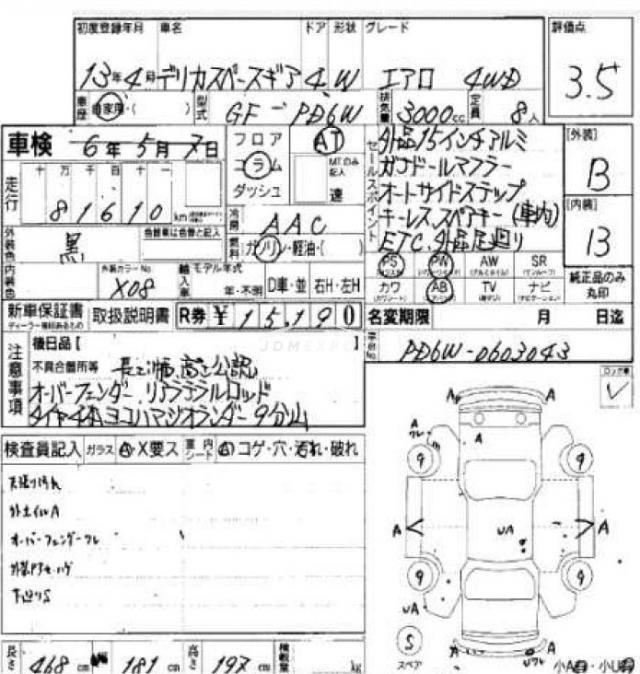 初度登録年月 車名 ドア 形状 グレード 評価点
13年4月 デリカスペースギア 4 W エアロ 4WD 3.5
車歴 自家用・( ) 型式 GF-PD6W 排気量 3000cc 定員 8人
車検 6年5月7日
フロア AT
コラム MTのみ記入
ダッシュ 速
セールスポイント
外品15インチアルミ
ガナドールマフラー
オートサイドステップ
キーレス、スペアキー(車内)
ETC、外品足廻り
[外装]
B
[内装]
B
走行 十 万 千 百 十
81610 km
冷房 AAC
燃料 ガソリン・軽油・( )
外装色 黒 色替車は色番と記入
PS PW AW SR
カワ AB TV ナビ
純正品のみ丸印
内装色 外装カラーNo. X08
輸入車 モデル年式 年・不明 D車・並 右H・左H
新車保証書 取扱説明書 R券 ¥15,190
ディーラー捺印あるもの
名変期限 月 日迄
注意事項
後日品[ ]
PD6W-0603043
不具合箇所等
オーバーフェンダー リアラテラルロッド
タイヤ4本ヨコハマジオランダー9分山
ロック車
検査員記入 ガラス A・X要ス 車内シート A コゲ・穴・汚れ・破れ
天張り汚れ
外ホイルA
オーバーフェンダーワレ
下廻りS
A A
A
A
ワレ
9 9
A A
UA
9 9
UA
S
スペア
A A
Uワレ
長さ 468 cm 幅 181 cm 高さ 197 cm 積載量 kg
小A 小U
JDMEXPO